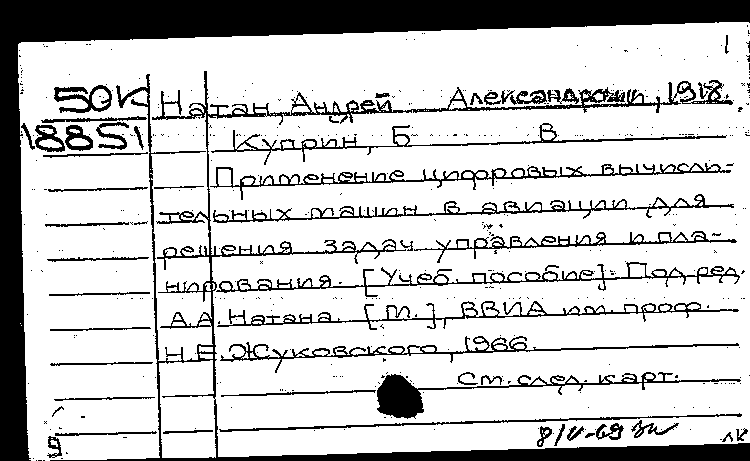 1
50К Натан, Андрей Александрович, 1918.
18851 Куприн, Б В
Применение цифровых вычисли-
тельных машин в авиации для
решения задач управления и пла-
нирования. [Учеб. пособие]. Под ред.
А.А. Натана. [М.], ВВИА им. проф.
Н.Е. Жуковского, 1966.
См. след. карт.
8/V-69
лк